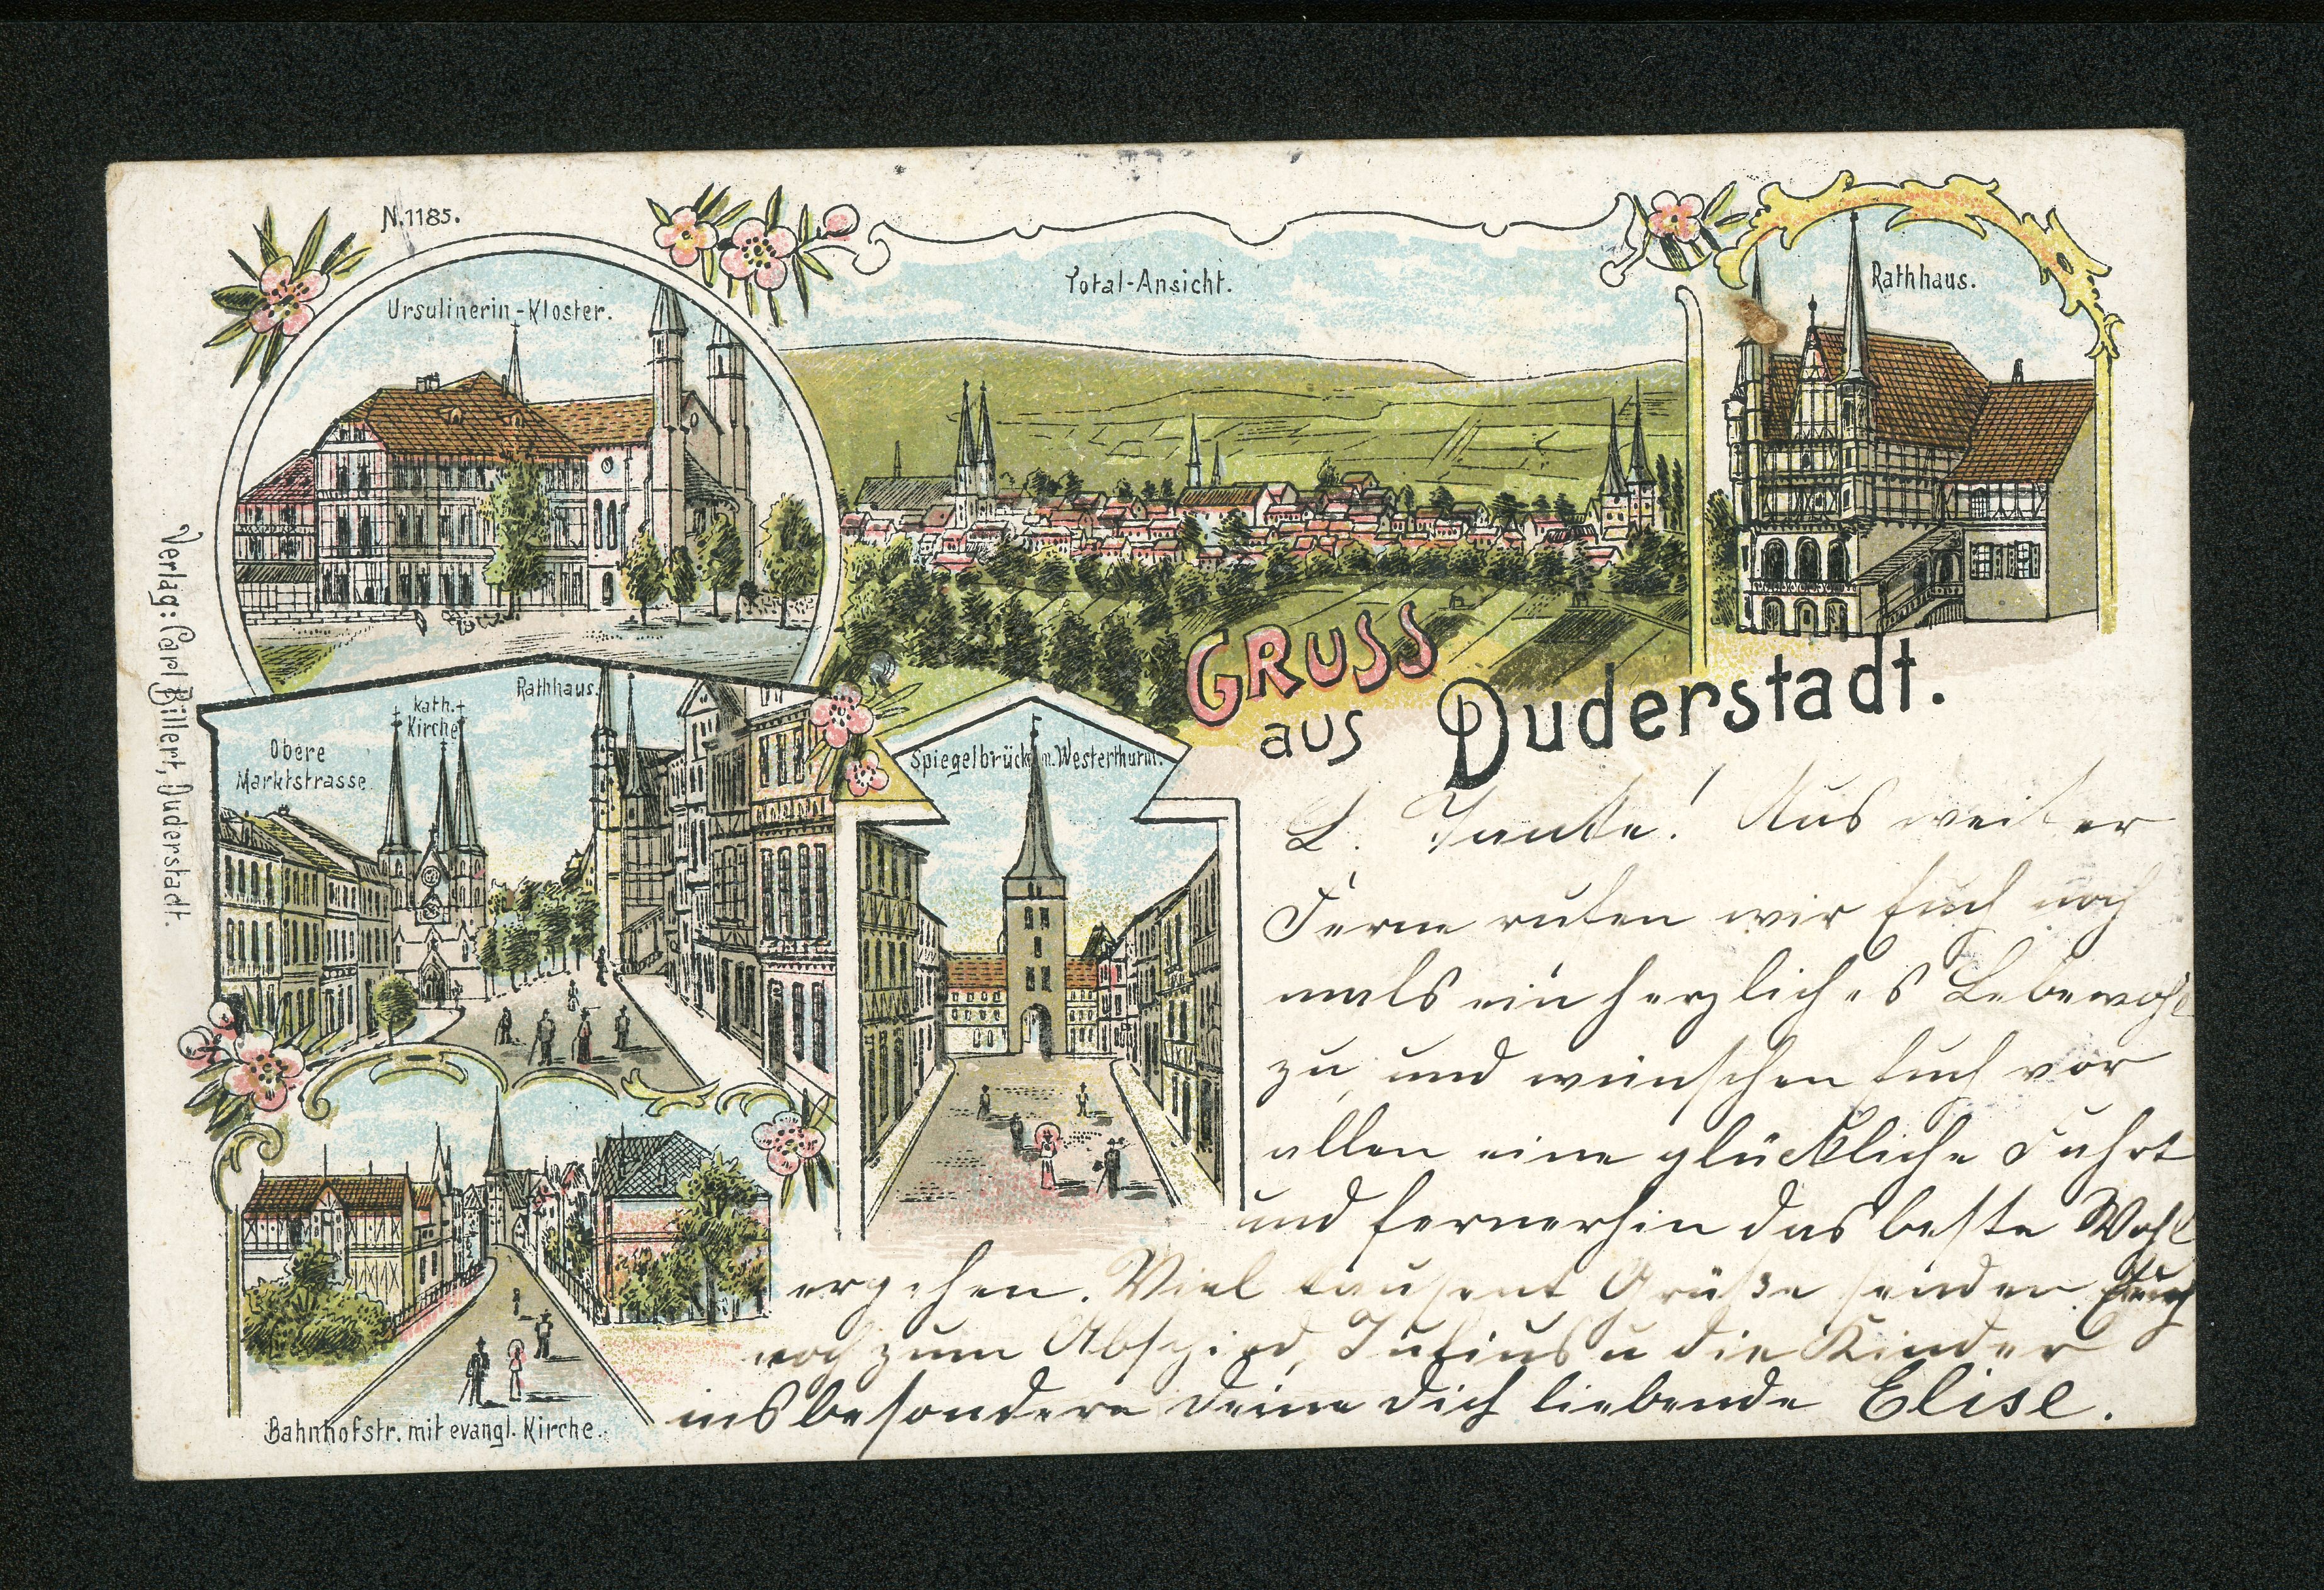 N. 1185.
Ursulinerin-Kloster.
Total-Ansicht.
Rathhaus.
Verlag: Carl Billert, Duderstadt.
Obere
Marktstrasse
kath.
Kirche
Rathhaus.
Spiegelbrücke m. Westerthurm.
Bahnhofstr. mit evangl. Kirche.
GRUSS
aus Duderstadt.
L. Tante! Aus weiter
Ferne rufen wir Euch noch
mals ein herzliches Lebewohl
zu, und wünschen Euch vor
allen eine glückliche Fahrt
und fernerhin das beste Wohl
ergehen. Viel tausent Grüße senden Euch
noch zum Abschied, Julius u die Kinder
insbesondere Deine Dich liebende Elise.